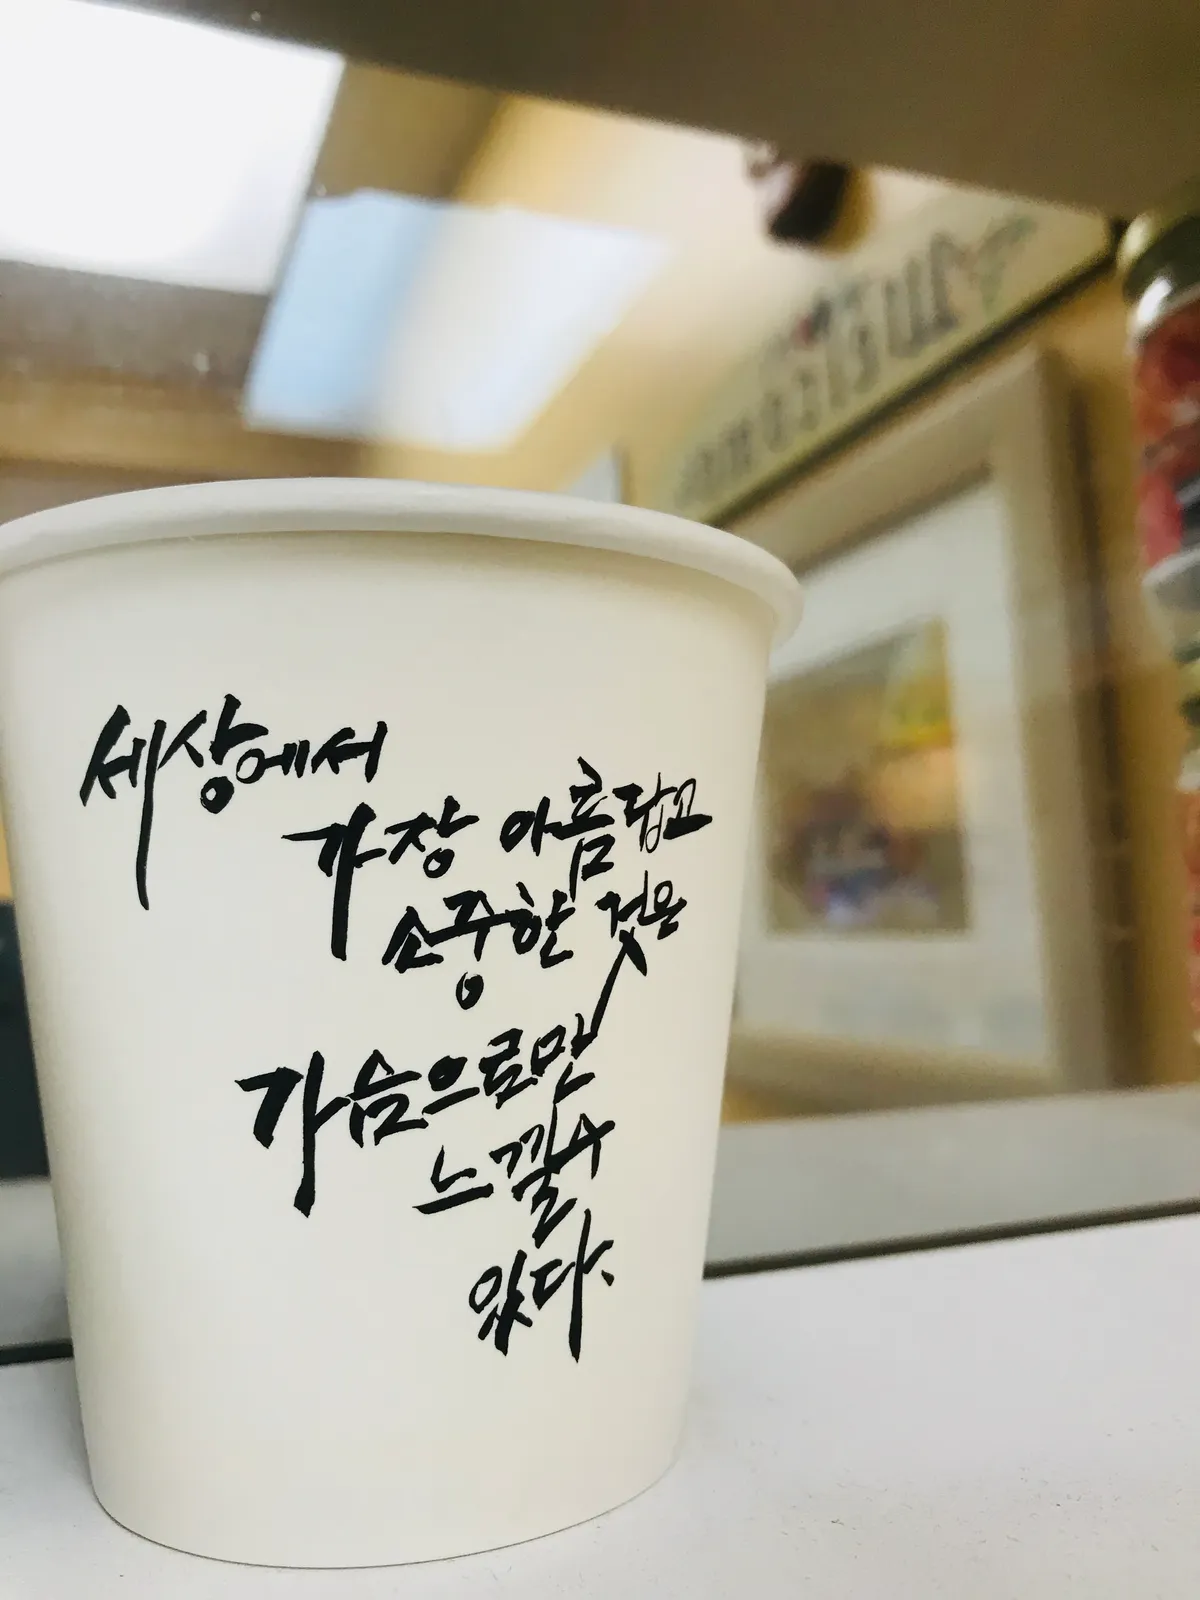 세상에서
가장 아름답고
소중한 것은
가슴으로만
느낄 수
있다.